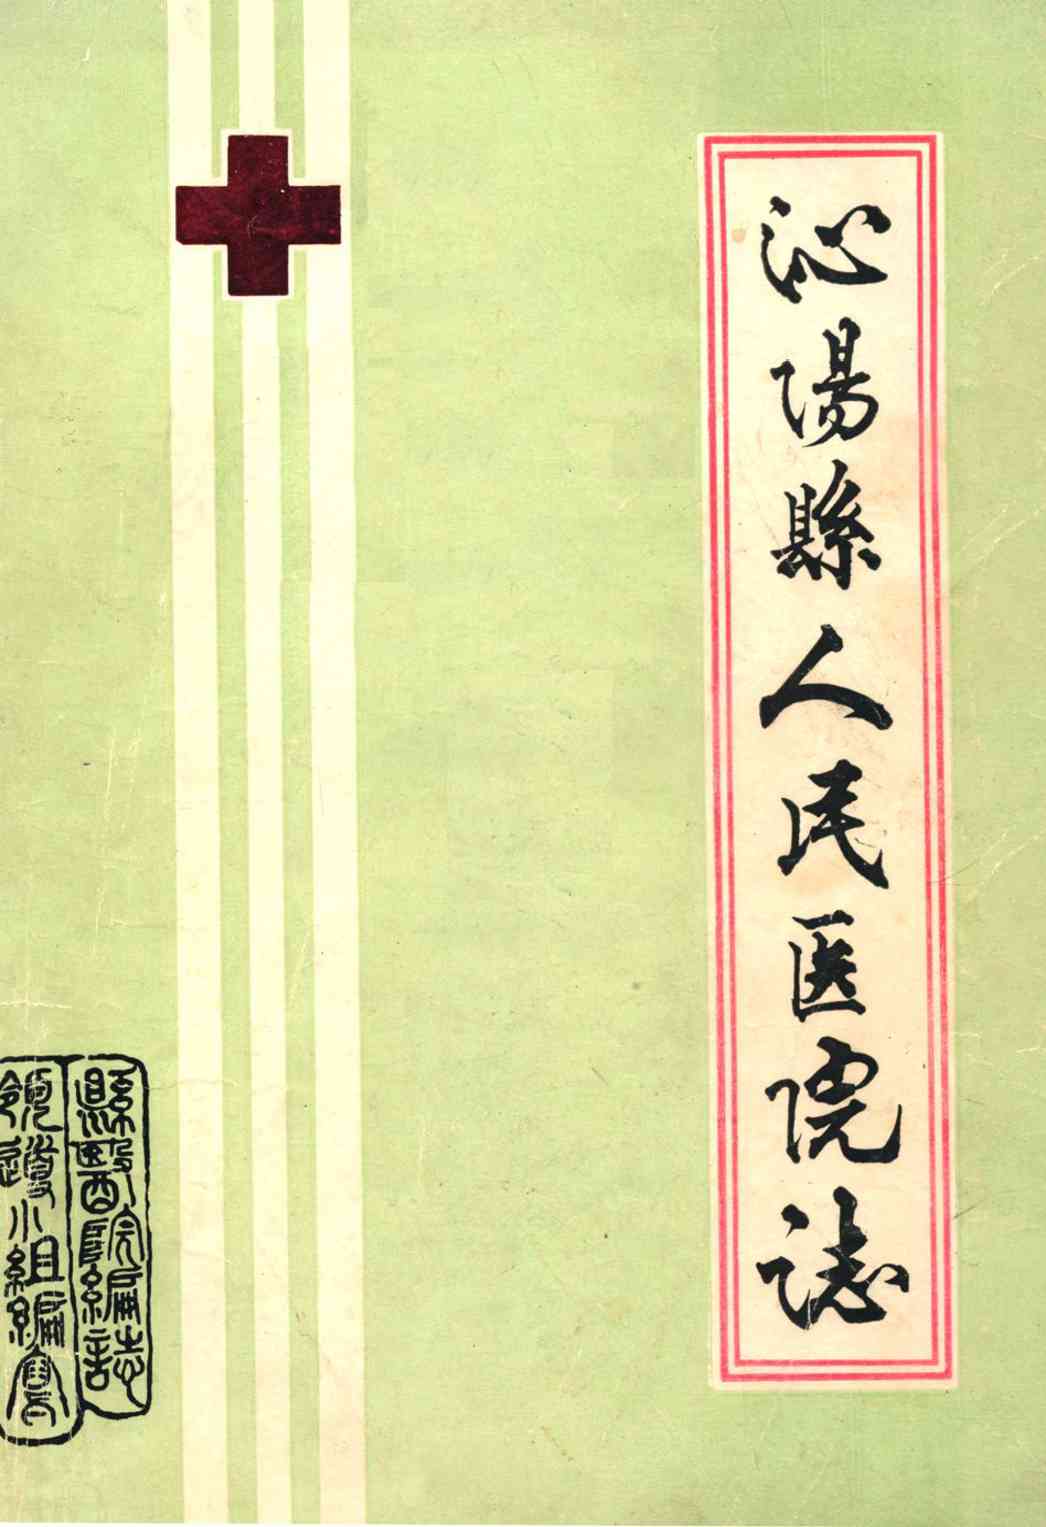 沁陽縣人民医院誌
縣醫院編誌
領導小組編寫